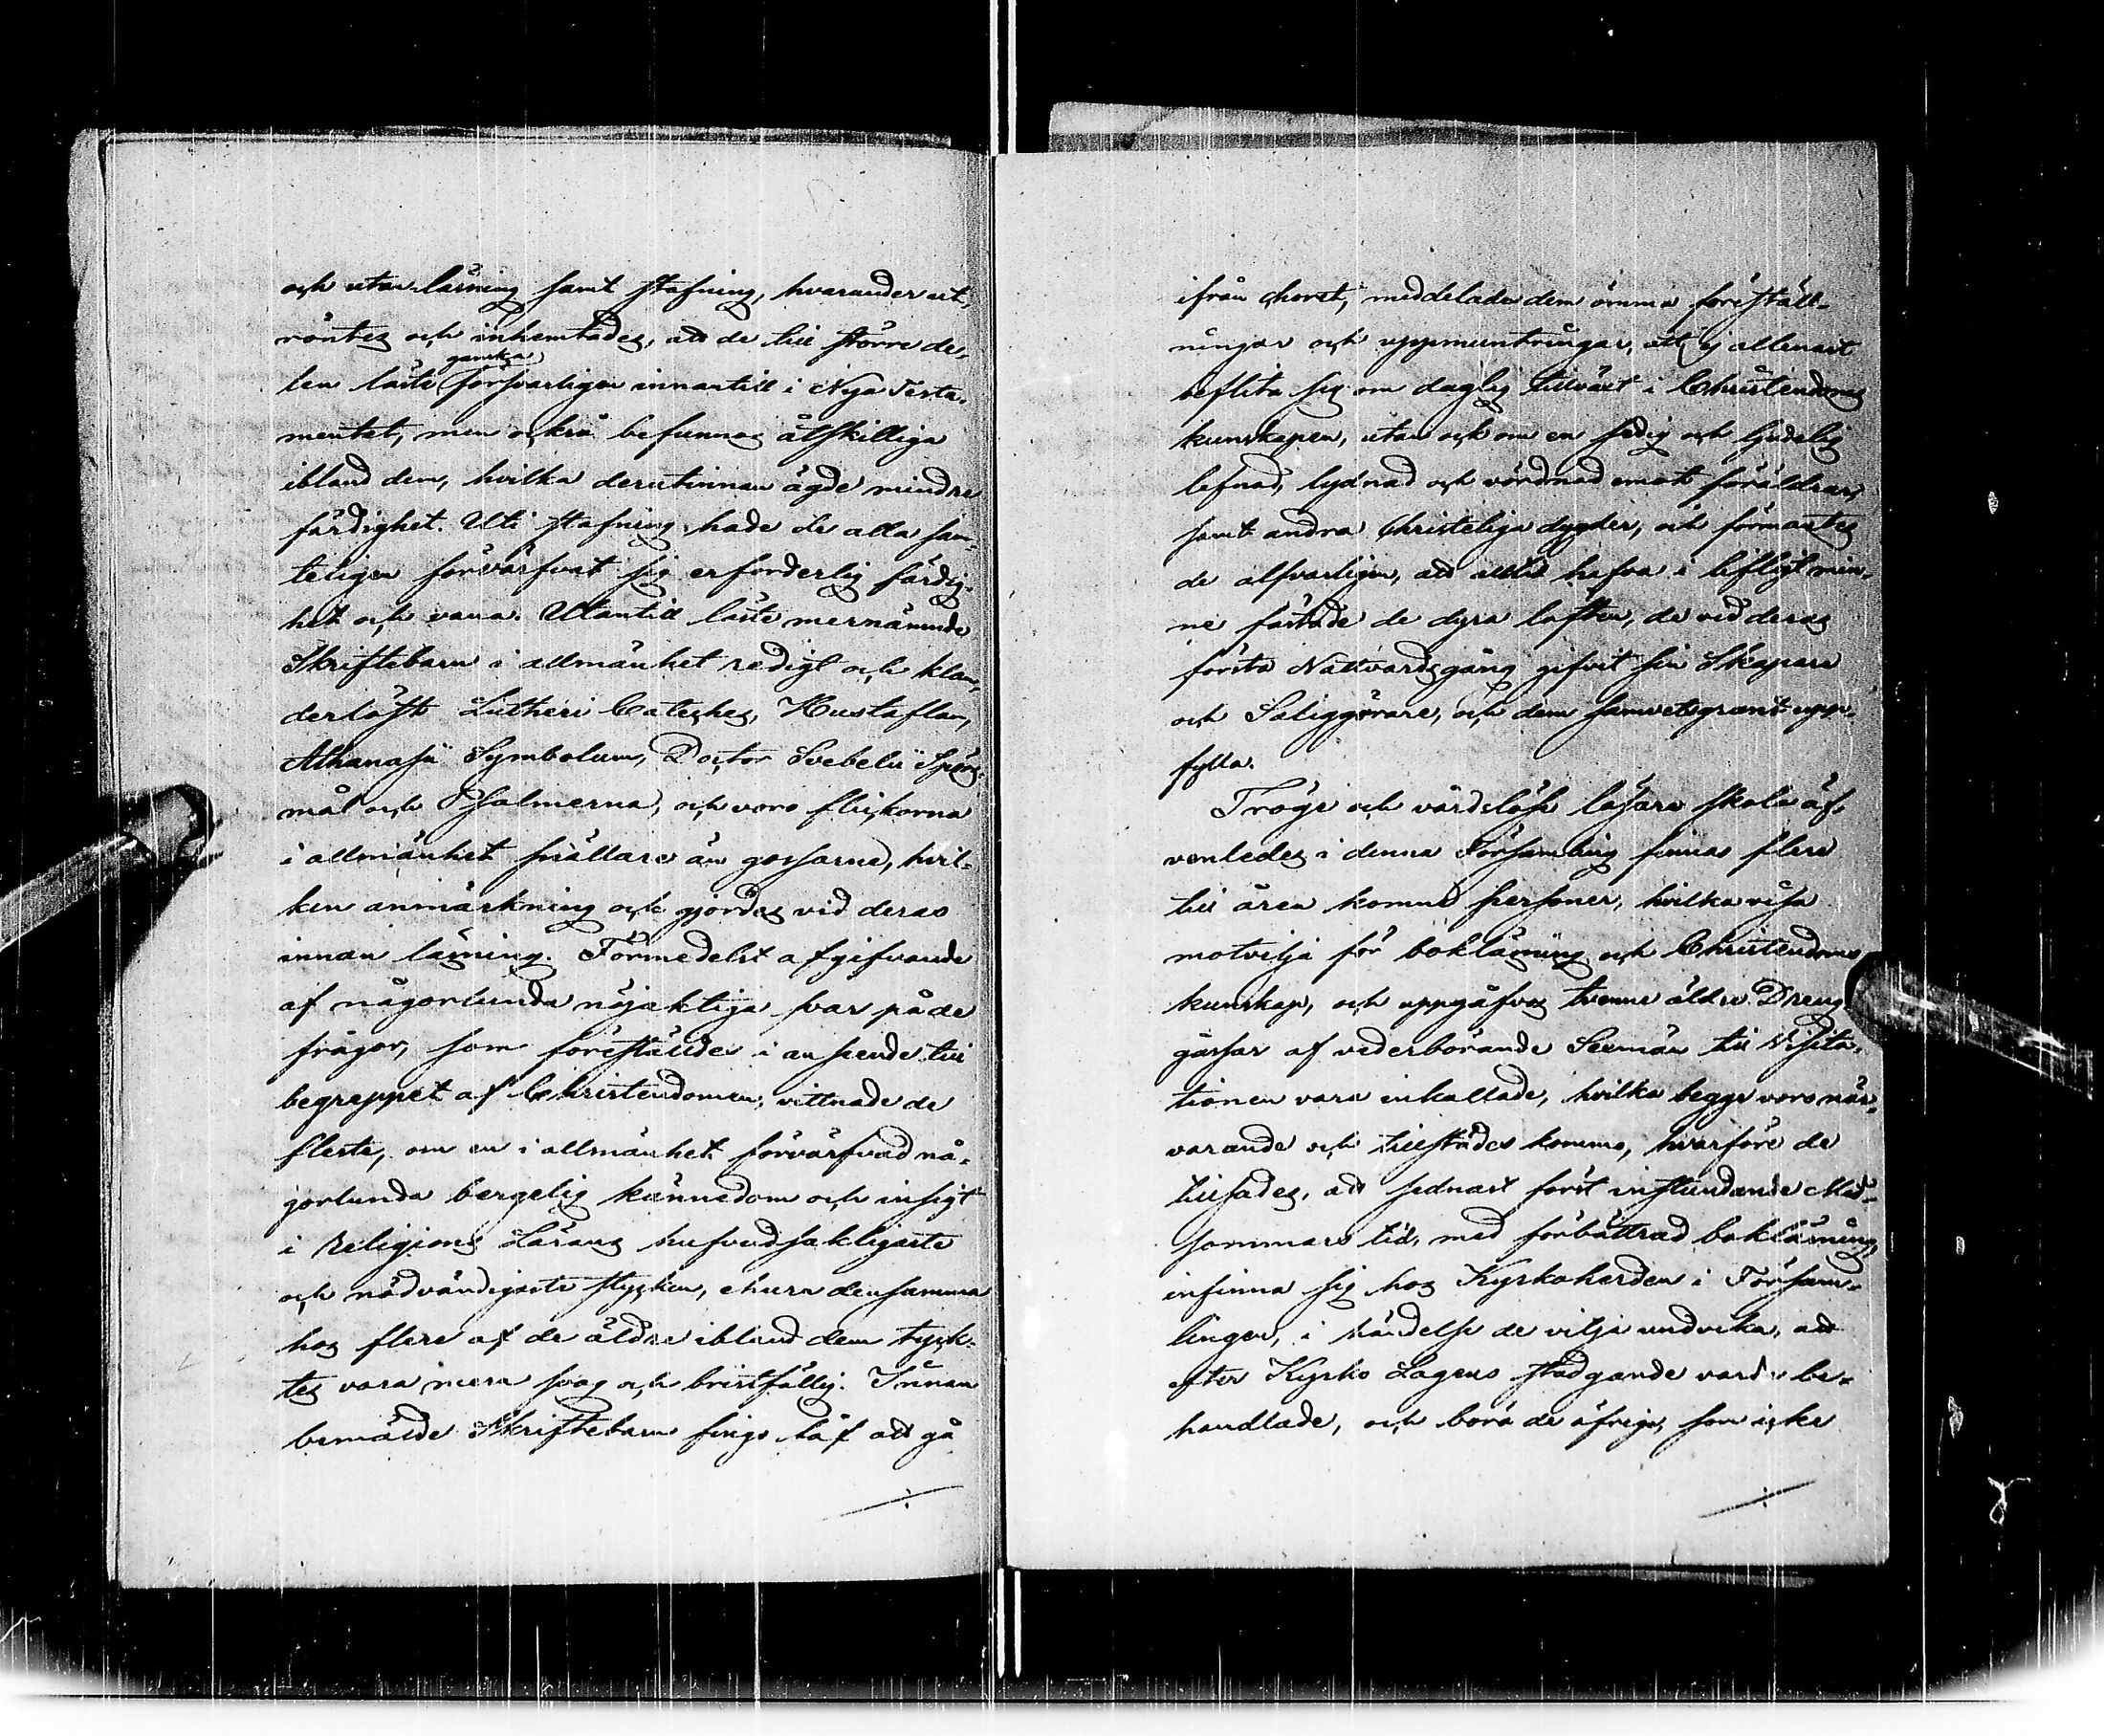 och utan läsning samt stafning, hvarunder ut-
röntes och inhemtades, att de till större de-
ganska
len läste försvarligen innantill i Nya Testa-
mentet, men också befunnos åtskilliga
ibland dem, hvilka derutinnan ägde mindre
färdighet. Uti stafning hade de alla sam-
teligen förvärfvat sig erforderlig färdig-
het och vana. Utantill läste mernämnde
Skriftebarn i allmänhet redigt och klan-
derlöst Lutheri Cateches, Hustaflan,
Athanasii Symbolum, Doctor Svebelii Spörs-
mål och Psalmerna, och voro flickorna
i allmänhet snällare än gossarne, hvil-
ken anmärkning och gjordes vid deras
innan läsning. Förmedelst afgifvande
af någorlunda nöjaktiga svar på de
frågor, som förestäldes i anseende till
begreppet af Christendomen, vittnade de
fleste, om en i allmänhet förvärfvad nå-
gorlunda bergelig kännedom och insigt
i Religions Lärans hufvudsakligaste
och nödvändigaste stycken, ehuru densamma
hos flere af de äldre ibland dem tyck-
tes vara mera svag och bristfällig. Innan
bemälde Skriftebarn fingo låf att gå
ifrån choret, meddelades dem ömma föreställ-
ningar och uppmuntringar, att ej allenast
beflita sig om daglig tillväxt i Christendoms
kunskapen, utan ock om en sedig och Gudelig
lefnad, lydnad och vördnad emot föräldrar,
samt andra Christeliga dygder, och förmantes
de alfvarligen, att alltid hafva i lifligt min-
ne fästade de dyra löften, de vid deras
första Nattvardsgång gifvit sin Skapare
och Saliggörare, och dem samvetsgrant upp-
fylla.
Tröge och vårdslöse läsare skola äf-
venledes i denna Församling finnas flere
till åren komne personer, hvilka visa
motvilja för bokläsning och Christendoms
kunskap, och uppgåfvos tvenne äldre Dreng
gossar af vederbörande Sexmän till Visita-
tionen vara inkallade, hvilka begge voro när-
varande och tillstädes komne, hvarföre de
tillsades, att sednast först instundande Mid-
sommars tid, med förbättrad bokläsning,
infinna sig hos Kyrkoherden i Försam-
lingen, i händelse de vilja undvika, att
efter Kyrko Lagens stadgande varda be-
handlade, och böra de öfrige, som icke